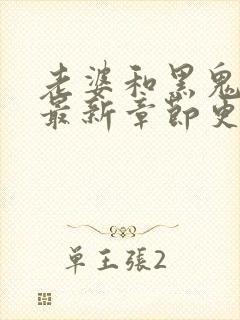 老婆和黑鬼
最新章节更
单王張2